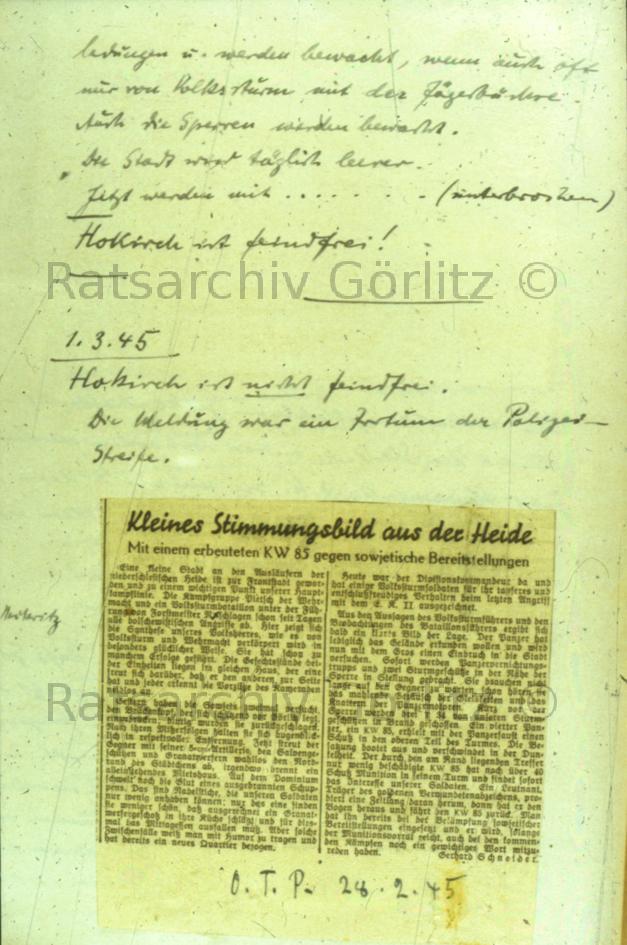 ledungen u. werden bewacht, wenn auch oft
nur von Volkssturm mit der Jägerbüchse.
Auch die Sperren werden bewacht.
Die Stadt wird täglich leerer.
Jetzt werden mit . . . . . . . (unterbrochen)
Hokirch ist feindfrei!
Ratsarchiv Görlitz ©
1.3.45
Hokirch ist nicht feindfrei.
Die Meldung war ein Irrtum der Polizei-
Streife.
Kleines Stimmungsbild aus der Heide
Mit einem erbeuteten KW 85 gegen sowjetische Bereitstellungen
Eine kleine Stadt an den Ausläufern der
niederschlesischen Heide ist zur Frontstadt gewor-
den und zu einem wichtigen Punkt unserer Haupt-
kampflinie. Die Kampfgruppe Pietsch der Wehr-
macht und ein Volkssturmbataillon unter der Füh-
rung von Forstmeister schlagen schon seit Tagen
alle bolschewistischen Angriffe ab. Hier zeigt sich
die Synthese unseres Volksheeres, wie es von
Volkssturm und Wehrmacht verkörpert wird in
besonders glücklicher Weise. Sie hat schon zu
manchem Erfolge geführt. Die Gefechtsstände bei-
der Einheiten liegen in gleichem Haus, der eine
freut sich darüber, daß er den anderen zur Seite
hat und jeder erkennt die Vorzüge des Kameraden
neidlos an.
Gestern haben die Sowjets
den Brückenkopf, der sich schützend vor
einzudrücken. Blutig wurden sie zurückgeschlagen.
Nach ihren Mißerfolgen halten sie sich
in respektvoller Entfernung. Jetzt streut der
Gegner mit seiner Artillerie, den Salvenge-
schützen und Granatwerfern wahllos den Nord-
rand des Städtchens ab. Irgendwo brennt ein
alleinstehendes Mietshaus. Auf dem Dominium
schwelt noch die Glut eines ausgebrannten Schup-
pens. Das sind Nadelstiche, die unseren Soldaten
nur wenig anhaben können; nur das eine finden
sie weniger schön, daß ausgerechnet ein Granat-
werfergeschoß in ihre Küche schlug und für dies-
mal das Mittagessen ausfallen muß. Aber solche
Zwischenfälle weiß man mit Humor zu tragen und
hat bereits ein neues Quartier bezogen.
Heute war der Divisionskommandeur da und
hat einige Volkssturmsoldaten für ihr tapferes und
entschlußfreudiges Verhalten beim letzten Angriff
mit dem E. K. II ausgezeichnet.
Aus den Aussagen des Volkssturmführers und den
Beobachtungen des Bataillonsführers ergibt sich
bald ein klares Bild der Lage. Der Panzer hat
lediglich das Gelände erkunden wollen und wird
nun mit dem Gros einen Einbruch in die Stadt
versuchen. Sofort werden Panzervernichtungs-
trupps und zwei Sturmgeschütze in der Nähe der
Sperre in Stellung gebracht. Sie brauchen nicht
lange auf den Gegner zu warten, schon hören sie
das unheimliche Geräusch der Gleisketten und das
Knattern der Panzermotoren. Kurz vor der
Sperre werden drei T 34 von unseren Sturm-
geschützen in Brand geschossen. Ein vierter Pan-
zer, ein KW 85, erhielt mit der Panzerfaust einen
Schuß in den oberen Teil des Turmes. Die Be-
satzung bootet aus und verschwindet in der Dun-
kelheit. Der durch den am Rand liegenden Treffer
nur wenig beschädigte KW 85 hat noch über 40
Schuß Munition in seinem Turm und findet sofort
das Interesse unserer Soldaten. Ein Leutnant,
Träger des goldenen Verwundetenabzeichens, pro-
biert eine Zeitlang daran herum, dann hat er den
Bogen heraus und fährt den KW 85 zurück. Man
hat ihn bereits bei der Bekämpfung sowjetischer
Bereitstellungen eingesetzt und er wird, solange
der Munitionsvorrat reicht, auch bei den kommen-
den Kämpfen noch ein gewichtiges Wort mitzu-
reden haben.
Gerhard Schneider.
Ratsarchiv Görlitz ©
O. T. P. 28.2.45